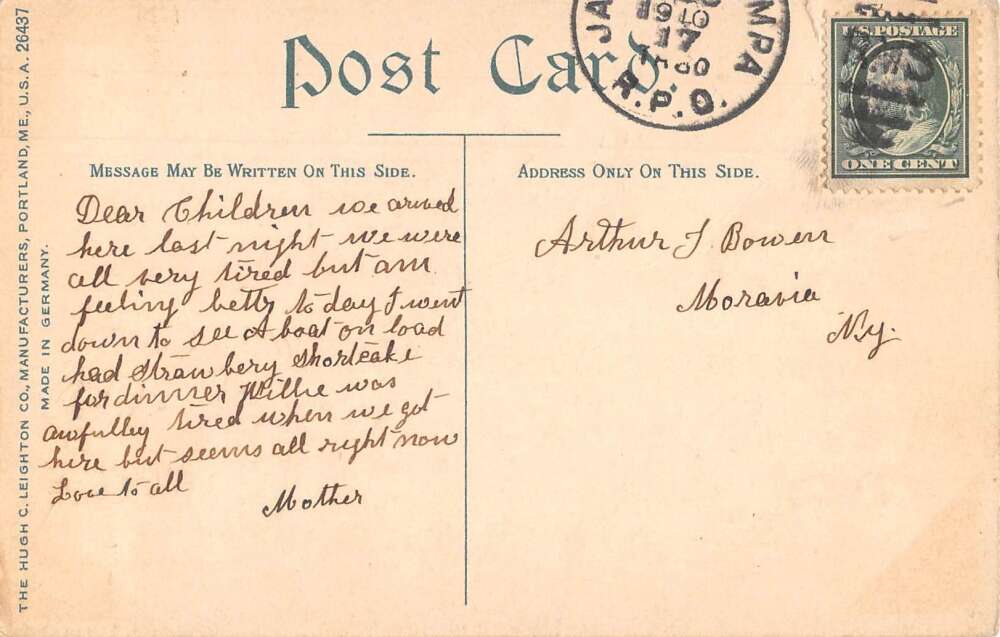 Post Card.
JA MPA
1910
17
R.P.O.
U.S. POSTAGE
ONE CENT
MESSAGE MAY BE WRITTEN ON THIS SIDE.
ADDRESS ONLY ON THIS SIDE.
Dear Children we arrived
here last night we were
all very tired but am
feeling bettr to day I went
down to see A boat on load
had strawbery shortcake
for dinner Willie was
awfulley tired when we got
here but seems all right now
Love to all
Mother
Arthur J. Bowen
Moravia
Ny.
THE HUGH C. LEIGHTON CO., MANUFACTURERS, PORTLAND, ME., U.S.A. 26437
MADE IN GERMANY.